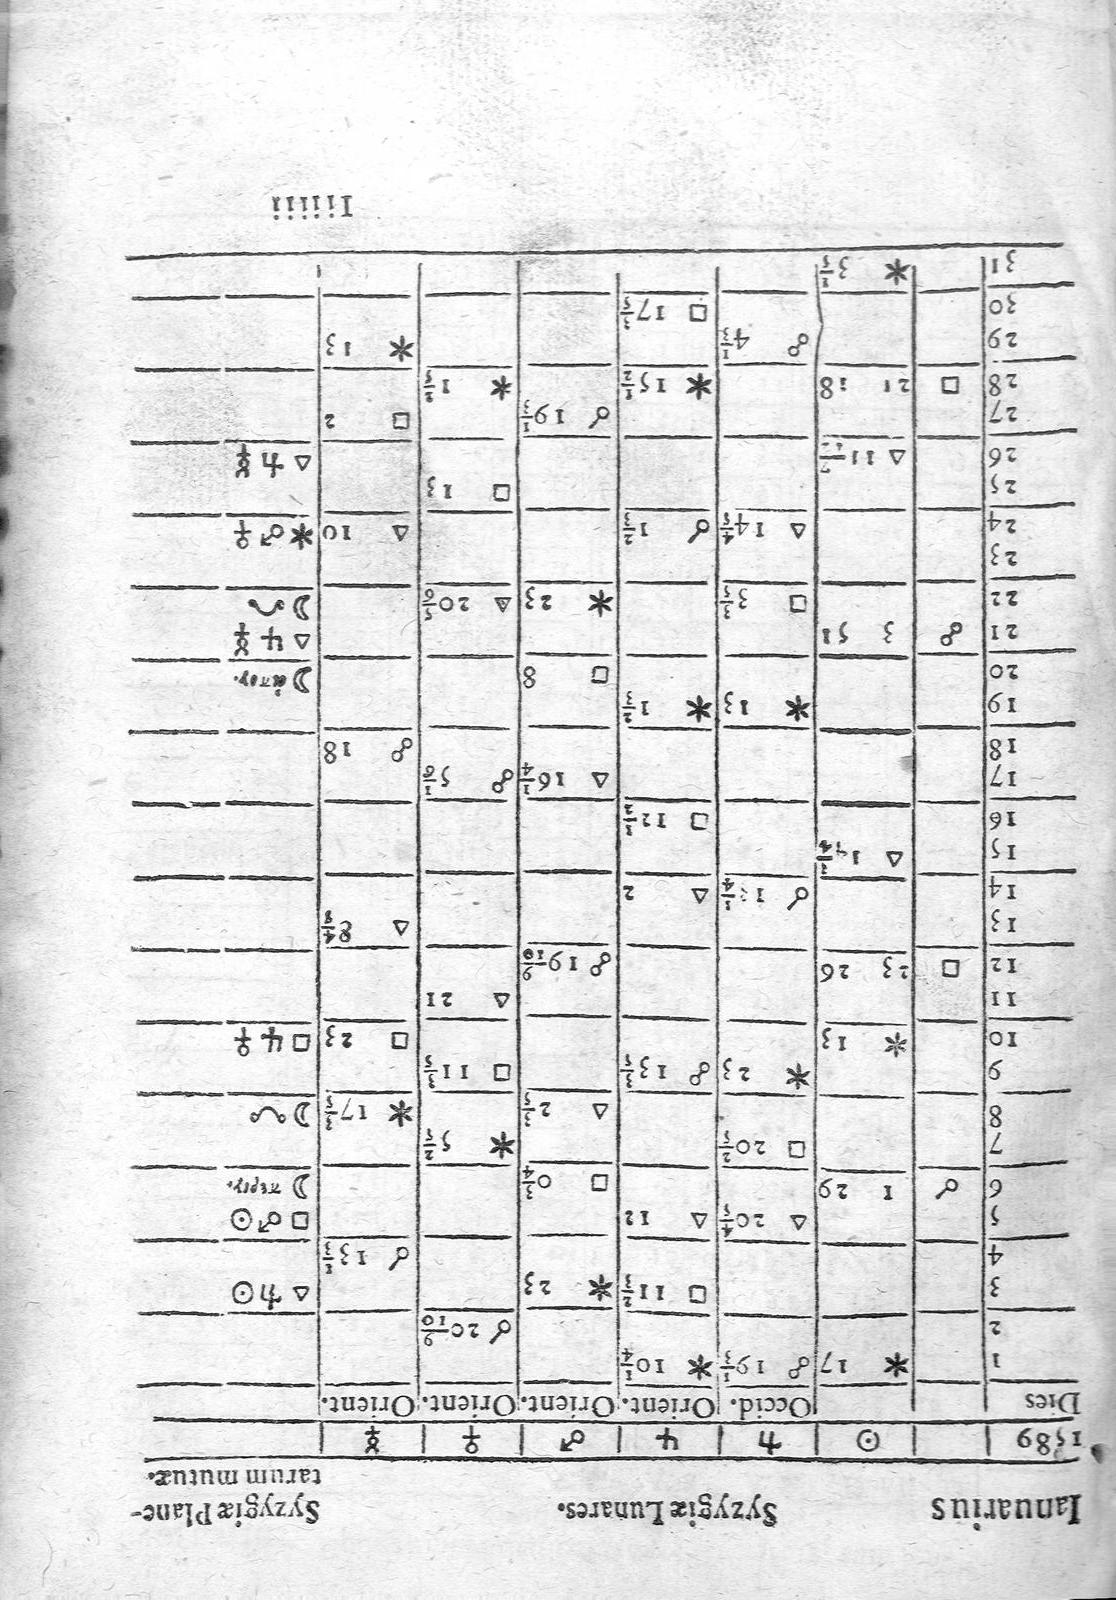 Ianuarius Syzygiæ Lunares. Syzygiæ Plane-
tarum mutuæ.
1589 ☉ ♄ ♃ ♂ ♀ ☿
Dies Occid. Orient. Orient. Orient. Orient.
1 ✶ 17 ☍ 19 1/3 ✶ 10 1/4
2 ☌ 20 9/10
3 □ 11 2/3 ✶ 23 △ ♄ ☉
4 ☌ 13 1/3
5 △ 20 4/5 △ 12 □ ♂ ☉
6 ☌ 1 29 □ 0 3/4 ☽ περιγ.
7 □ 20 2/5 ✶ 5 2/5
8 △ 2 2/5 ✶ 17 3/5 ☽
9 ✶ 23 ☍ 13 3/5 □ 11 3/5
10 ✶ 13 □ 23 □ ♃ ♀
11 △ 21
12 □ 23 26 ☍ 19 9/10
13 △ 8 4/5
14 ☌ △ 2
15 △
16 □ 12 1/2
17 △ 16 1/4 ☍ 5 1/6
18 ☍ 18
19 ✶ 13 ✶ 1 2/3
20 □ 8 ☽ ἀπογ.
21 ☍ 3 51 △ ♃ ☿
22 □ 3 3/5 ✶ 23 △ 20 5/6 ☽
23
24 △ 14 4/5 ☌ 1 2/3 △ 10 ✶ ♂ ♀
25 □ 13
26 △ 11 7/12 △ ♃ ☿
27 ☌ 19 1/3 □ 2
28 □ 21 18 ✶ 15 1/2 ✶ 1 2/5
29 ☍ 4 1/3 ✶ 13
30 □ 17 3/5
31 ✶ 3 1/5
Iiiiii